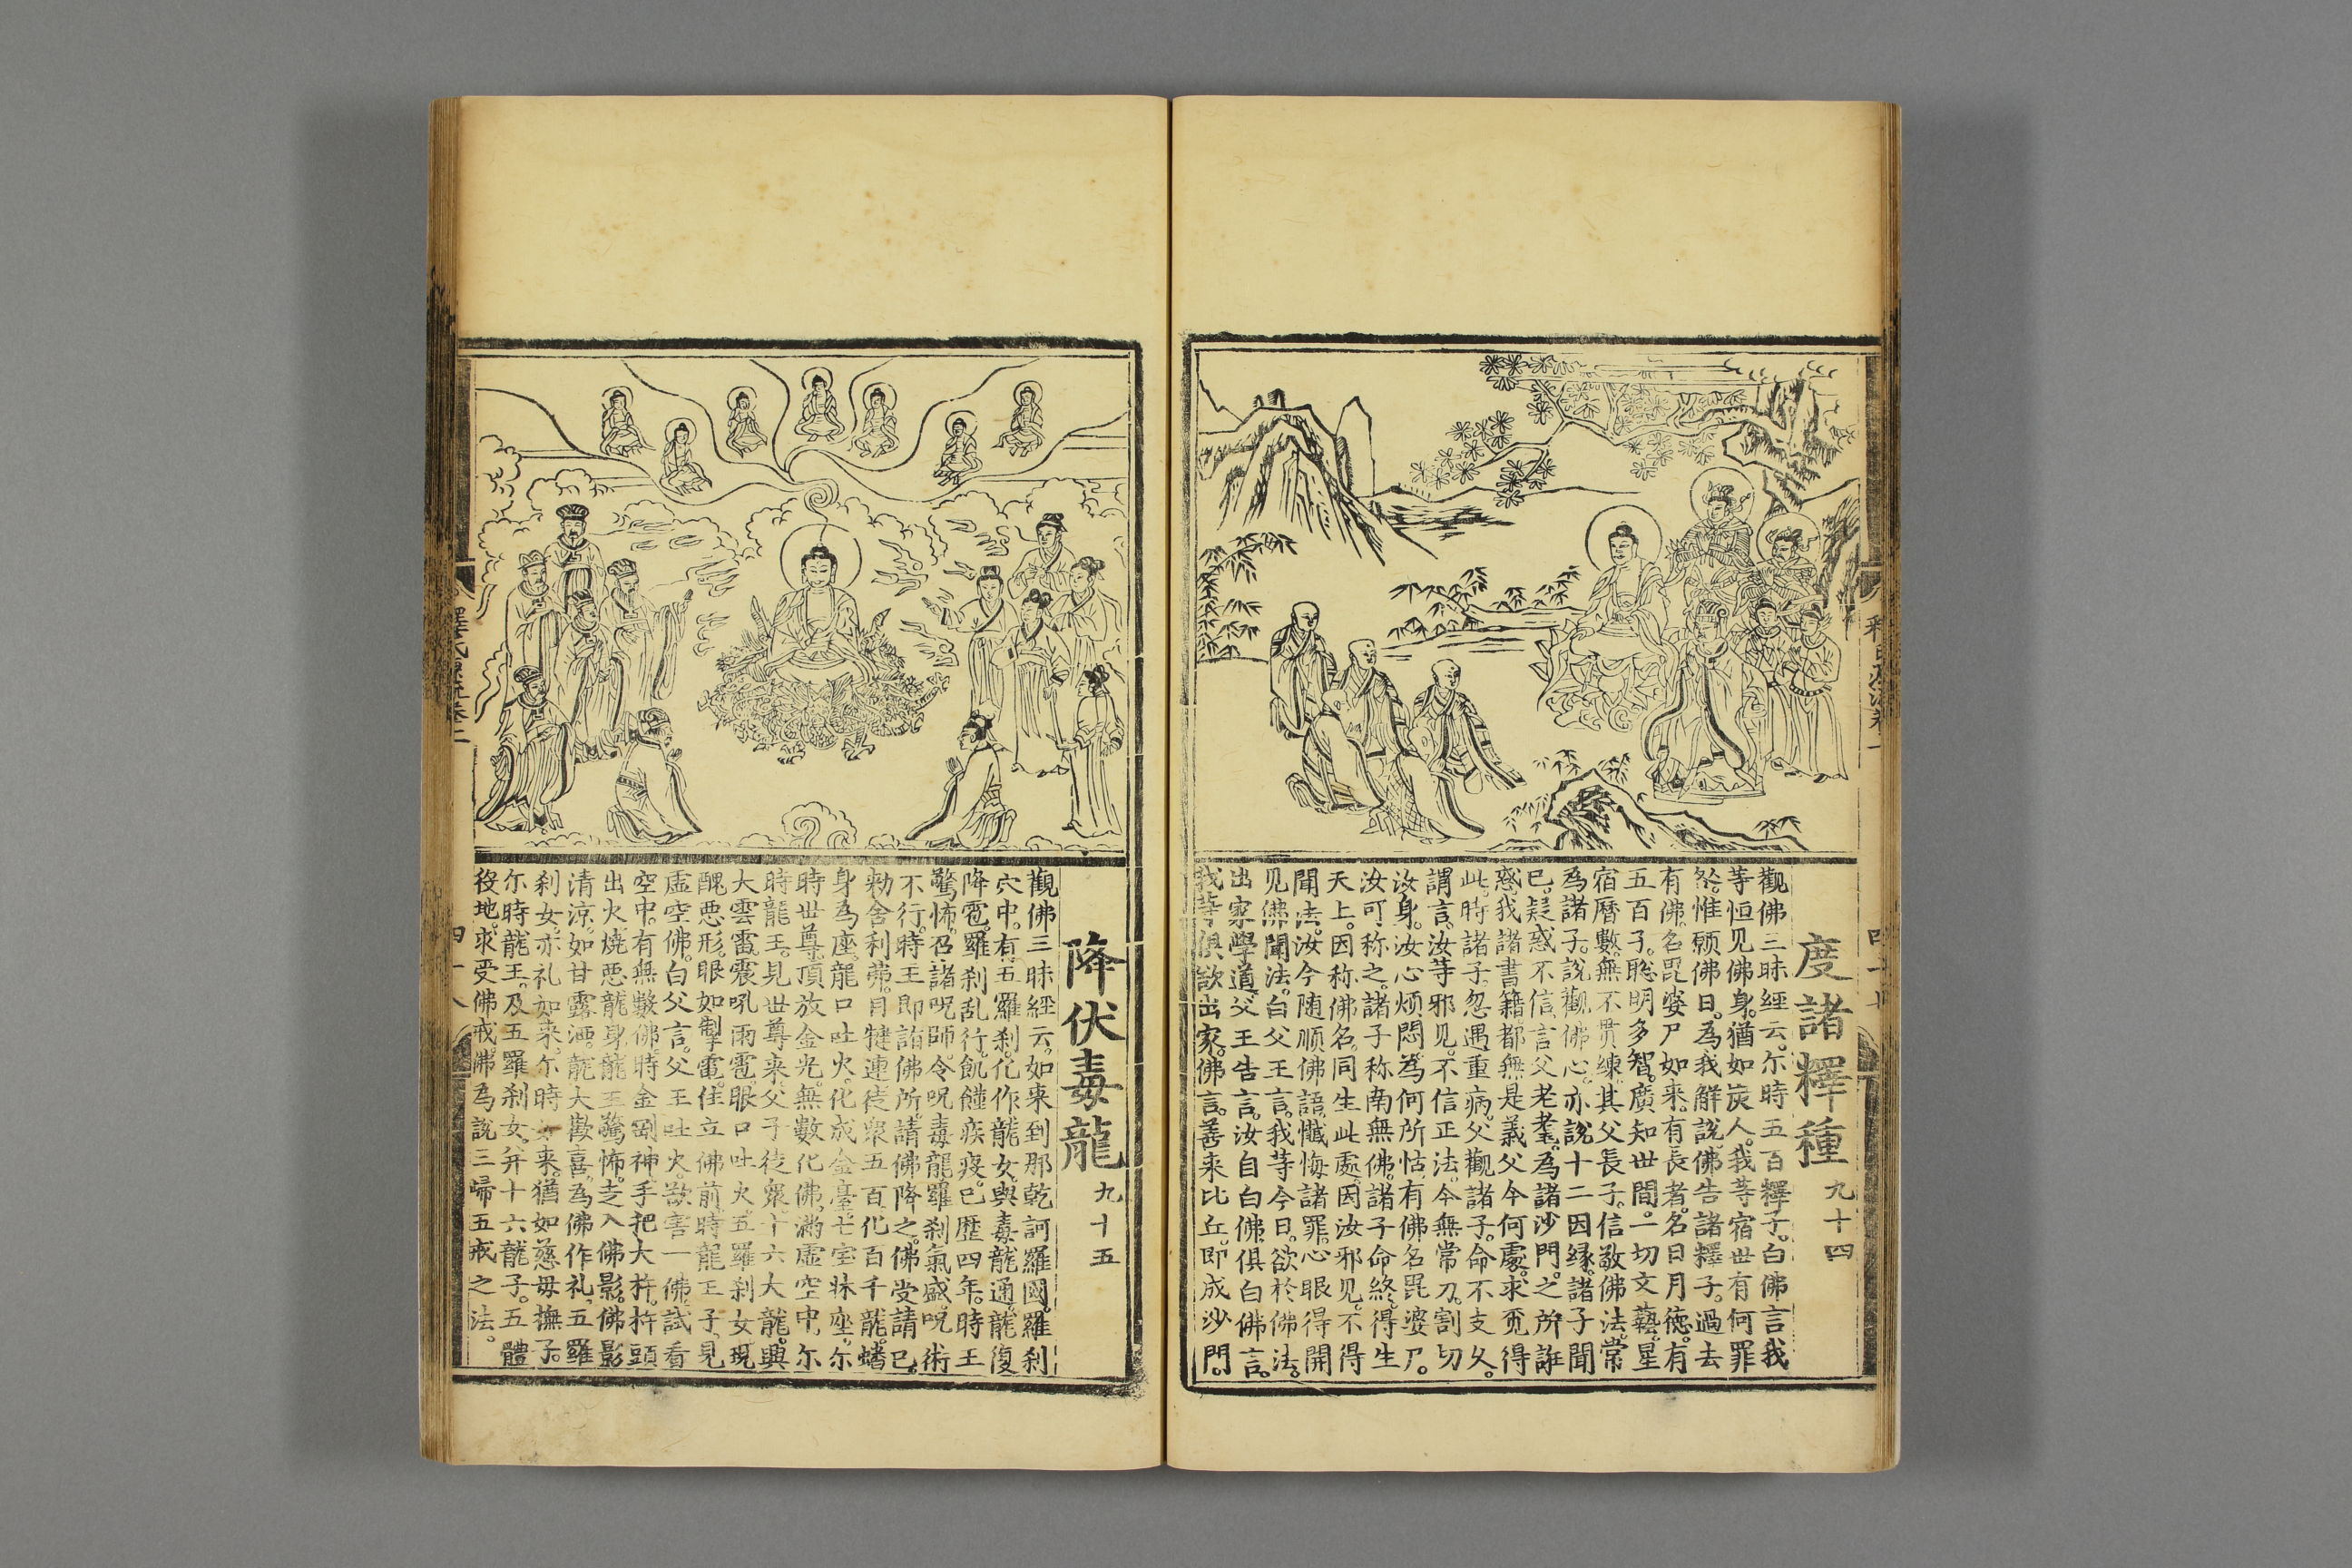 度諸釋種 九十四
觀佛三昧經云。尔時五百釋子。白佛言我
等恒见佛身。猶如炭人。我等宿世有何罪
咎。惟願佛日。為我解說。佛告諸釋子。過去
有佛。名毘婆尸如来。有長者。名日月德。有
五百子。聡明多智。廣知世間。一切文藝。星
宿曆數。無不貫練。其父長子。信敬佛法。常
為諸子。說觀佛心。亦說十二因緣。諸子聞
已。疑惑不信。言父老耄。為諸沙門。之所誑
惑。我諸書籍。都無是義。父今何處。求覓得
此。時諸子。忽遇重病。父觀諸子。命不支久。
謂言。汝等邪见。不信正法。今無常刀。割切
汝身。汝心烦悶。為何所怙。有佛名毘婆尸。
汝可称之。諸子称南無佛。諸子命終。得生
天上。因称佛名。同生此處。因汝邪见。不得
聞法。汝今随顺佛語。懴悔諸罪。心眼得開
见佛聞法。白父王言。我等今日。欲於佛法。
出家學道。父王告言。汝自白佛。俱白佛言。
我等俱欲出家。佛言。善来比丘。即成沙門。
降伏毒龍 九十五
觀佛三昧經云。如来到那乾訶羅國。羅刹
穴中。有五羅刹。化作龍女。與毒龍通。龍復
降雹。羅刹乱行。飢饉疾疫。已歷四年。時王
驚怖。召諸呪師。令呪毒龍。羅刹氣盛。呪術
不行。時王即詣佛所。請佛降之。佛受請已。
勑舍利弗。目犍連。徒衆五百。化百千龍。蟠
身為座。龍口吐火。化成金臺。七宝牀座。尔
時世尊。頂放金光。無數化佛。滿虛空中。尔
時龍王。见世尊来。父子徒衆。十六大龍。興
大雲雷。震吼雨雹。眼口吐火。五羅刹女。現
醜惡形。眼如掣電。住立佛前。時龍王子。見
虛空佛。白父言。父王吐火。欲害一佛。試看
空中。有無數佛。時金剛神。手把大杵。杵頭
出火。燒惡龍身。龍王驚怖。走入佛影。佛影
清凉。如甘露洒。龍大歡喜。為佛作礼。五羅
刹女。亦礼如来。尔時如来。猶如慈母撫子。
尔時龍王。及五羅刹女。并十六龍子。五體
投地。求受佛戒。佛為說三帰五戒之法。
四十八